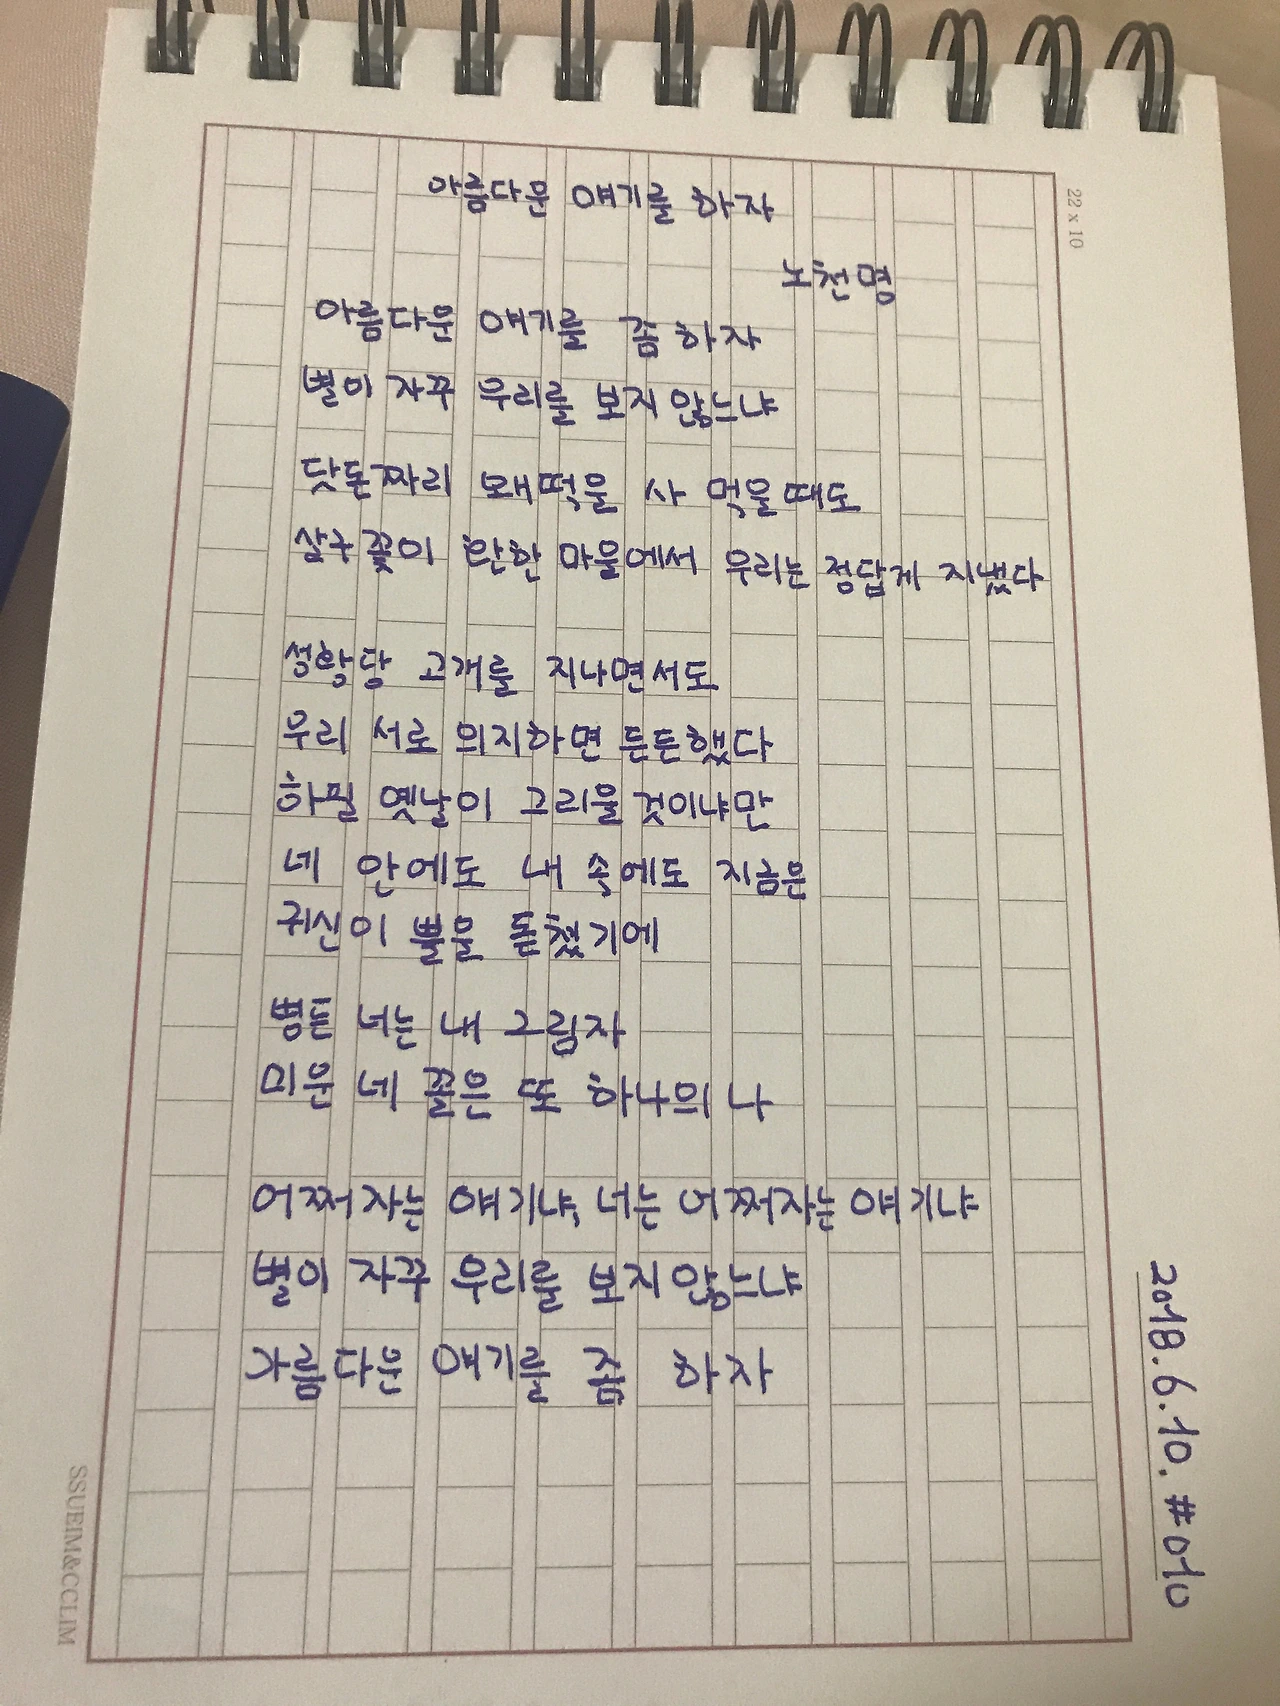 아름다운 얘기를 하자
노천명
아름다운 얘기를 좀 하자
별이 자꾸 우리를 보지 않느냐
닷돈짜리 왜떡을 사 먹을때도
살구꽃이 환한 마을에서 우리는 정답게 지냈다
성황당 고개를 지나면서도
우리 서로 의지하면 든든했다
하필 옛날이 그리울 것이냐만
네 안에도 내 속에도 지금은
귀신이 뿔을 돋쳤기에
병든 너는 내 그림자
미운 네 꼴은 또 하나의 나
어쩌자는 얘기냐, 너는 어쩌자는 얘기냐
별이 자꾸 우리를 보지 않느냐
아름다운 얘기를 좀 하자
22 x 10
2018.6.10. #010
SSUEIM&CCLIM